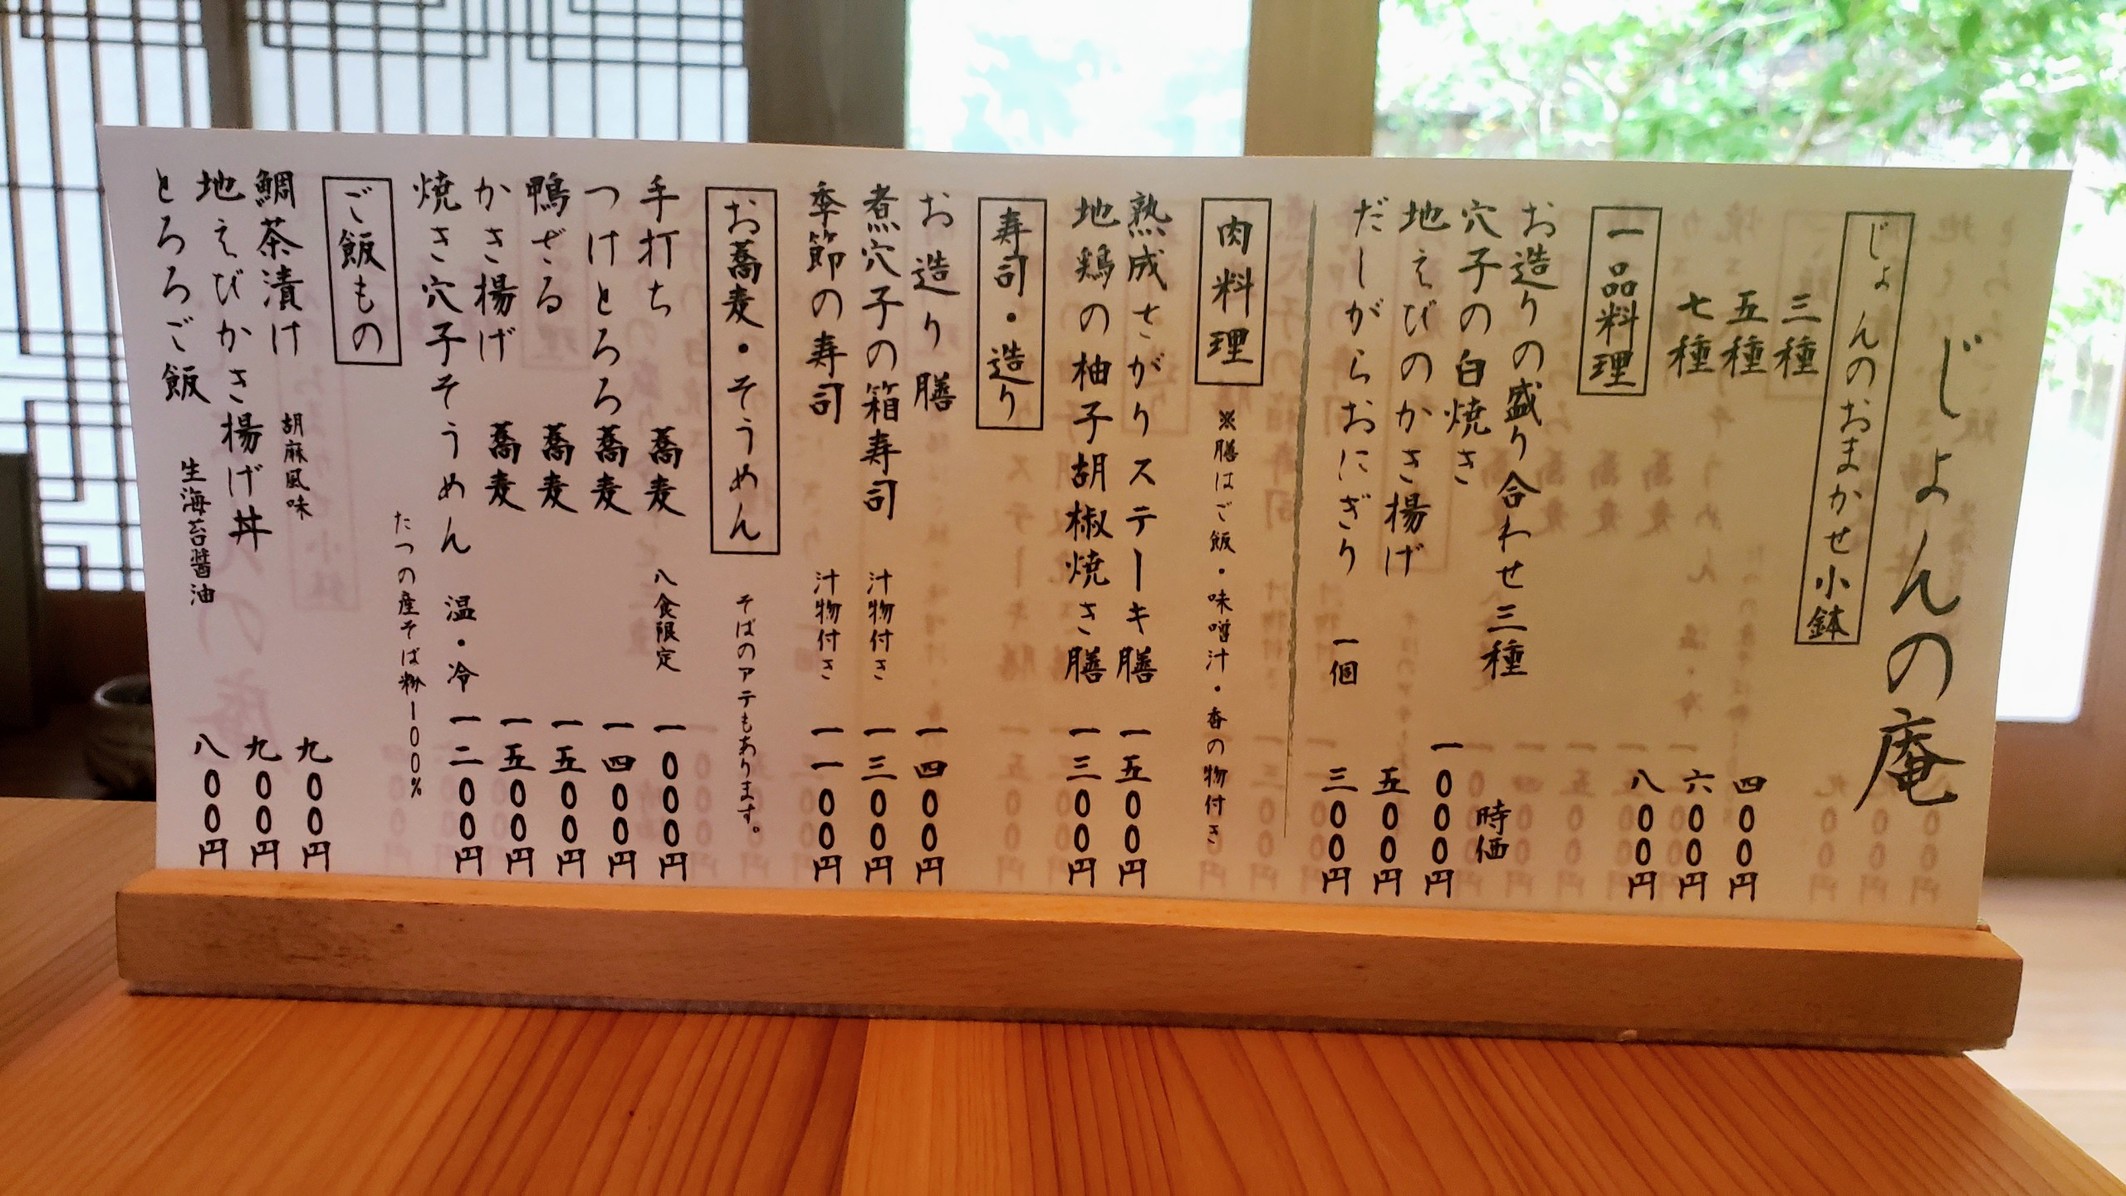 じょんの庵
じょんのおまかせ小鉢
三種 四〇〇円
五種 六〇〇円
七種 八〇〇円
一品料理
お造りの盛り合わせ三種 時価
穴子の白焼き 一〇〇〇円
地えびのかき揚げ 五〇〇円
だしがらおにぎり 一個 三〇〇円
肉料理 ※膳はご飯・味噌汁・香の物付き
熟成さがりステーキ膳 一五〇〇円
地鶏の柚子胡椒焼き膳 一三〇〇円
寿司・造り
お造り膳 一四〇〇円
煮穴子の箱寿司 汁物付き 一三〇〇円
季節の寿司 汁物付き 一一〇〇円
お蕎麦・そうめん そばのアテもあります。
手打ち蕎麦 八食限定 一〇〇〇円
つけとろろ蕎麦 一四〇〇円
鴨ざる蕎麦 一五〇〇円
かき揚げ蕎麦 一五〇〇円
焼き穴子そうめん 温・冷 一二〇〇円
たつの産そば粉一〇〇%
ご飯もの
鯛茶漬け 胡麻風味 九〇〇円
地えびかき揚げ丼 九〇〇円
とろろご飯 生海苔醤油 八〇〇円